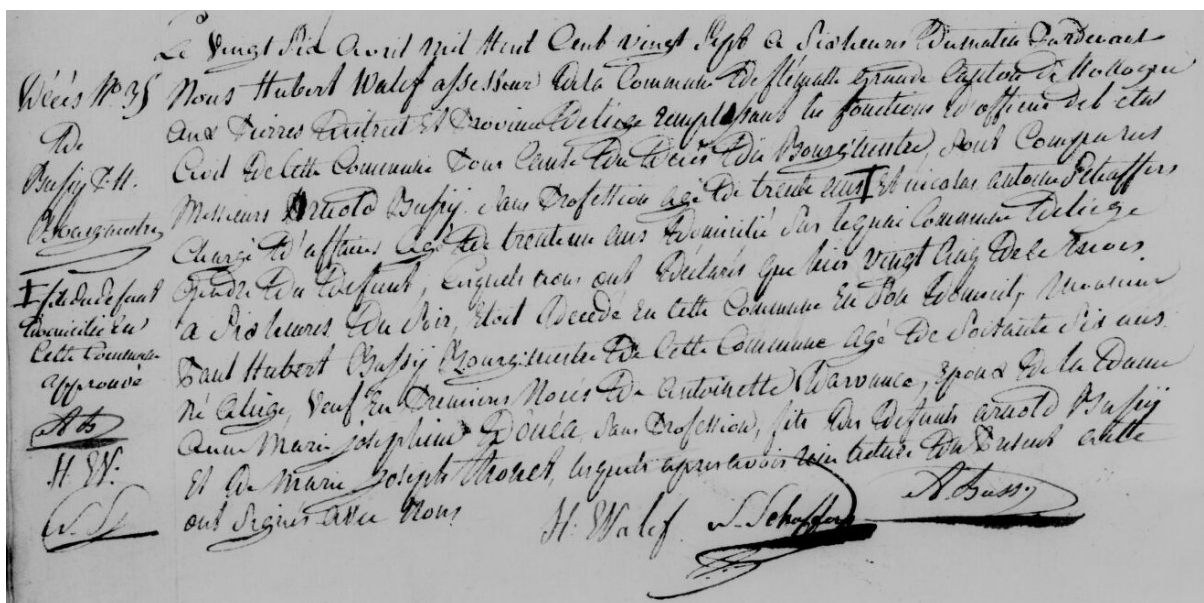 Décès N° 35
de
Bussÿ P. H.
Bourgmestre
I fils du defunt
domicilié en
Cette Commune
approuvé
AB
H. W.
N. S.
Le Vingt Six Avril Mil Huit Cent vingt Sept a Six heures Du matin Pardevant
Nous Hubert Walef assesseur de la Commune de flémalle grande Canton de Hollogne
aux Pierres district Et Province de liege remplissant les fonctions d'officier de l'etat
Civil de Cette Commune Pour Cause du décès du Bourgmestre, Sont Comparus
Messieurs Arnold Bussÿ Sans Profession agé de trente ans I Et nicolas antoine Schaffers
Chargé d'affaires agé de trente un ans domicilié Sur le quai Commune de liege
Gendre du defunt, Lesquels nous ont déclarés que hier vingt Cinq de Ce mois
a Six heures du Soir, Etoit décédé En Cette Commune En Son domicile, Monsieur
Paul Hubert Bussÿ Bourgmestre de Cette Commune agé de Soixante Six ans
né a liege, Veuf En Premieres Noces de Antoinette Warvonce, Epoux de la Dame
Anne Marie josephine Donéa, Sans Profession, fils des défunts arnold Bussÿ
Et de Marie Joseph thonet, lesquels apres avoir reçu lecture du Present acte
ont Signés avec Nous
H. Walef N. Schaffers A. Bussy